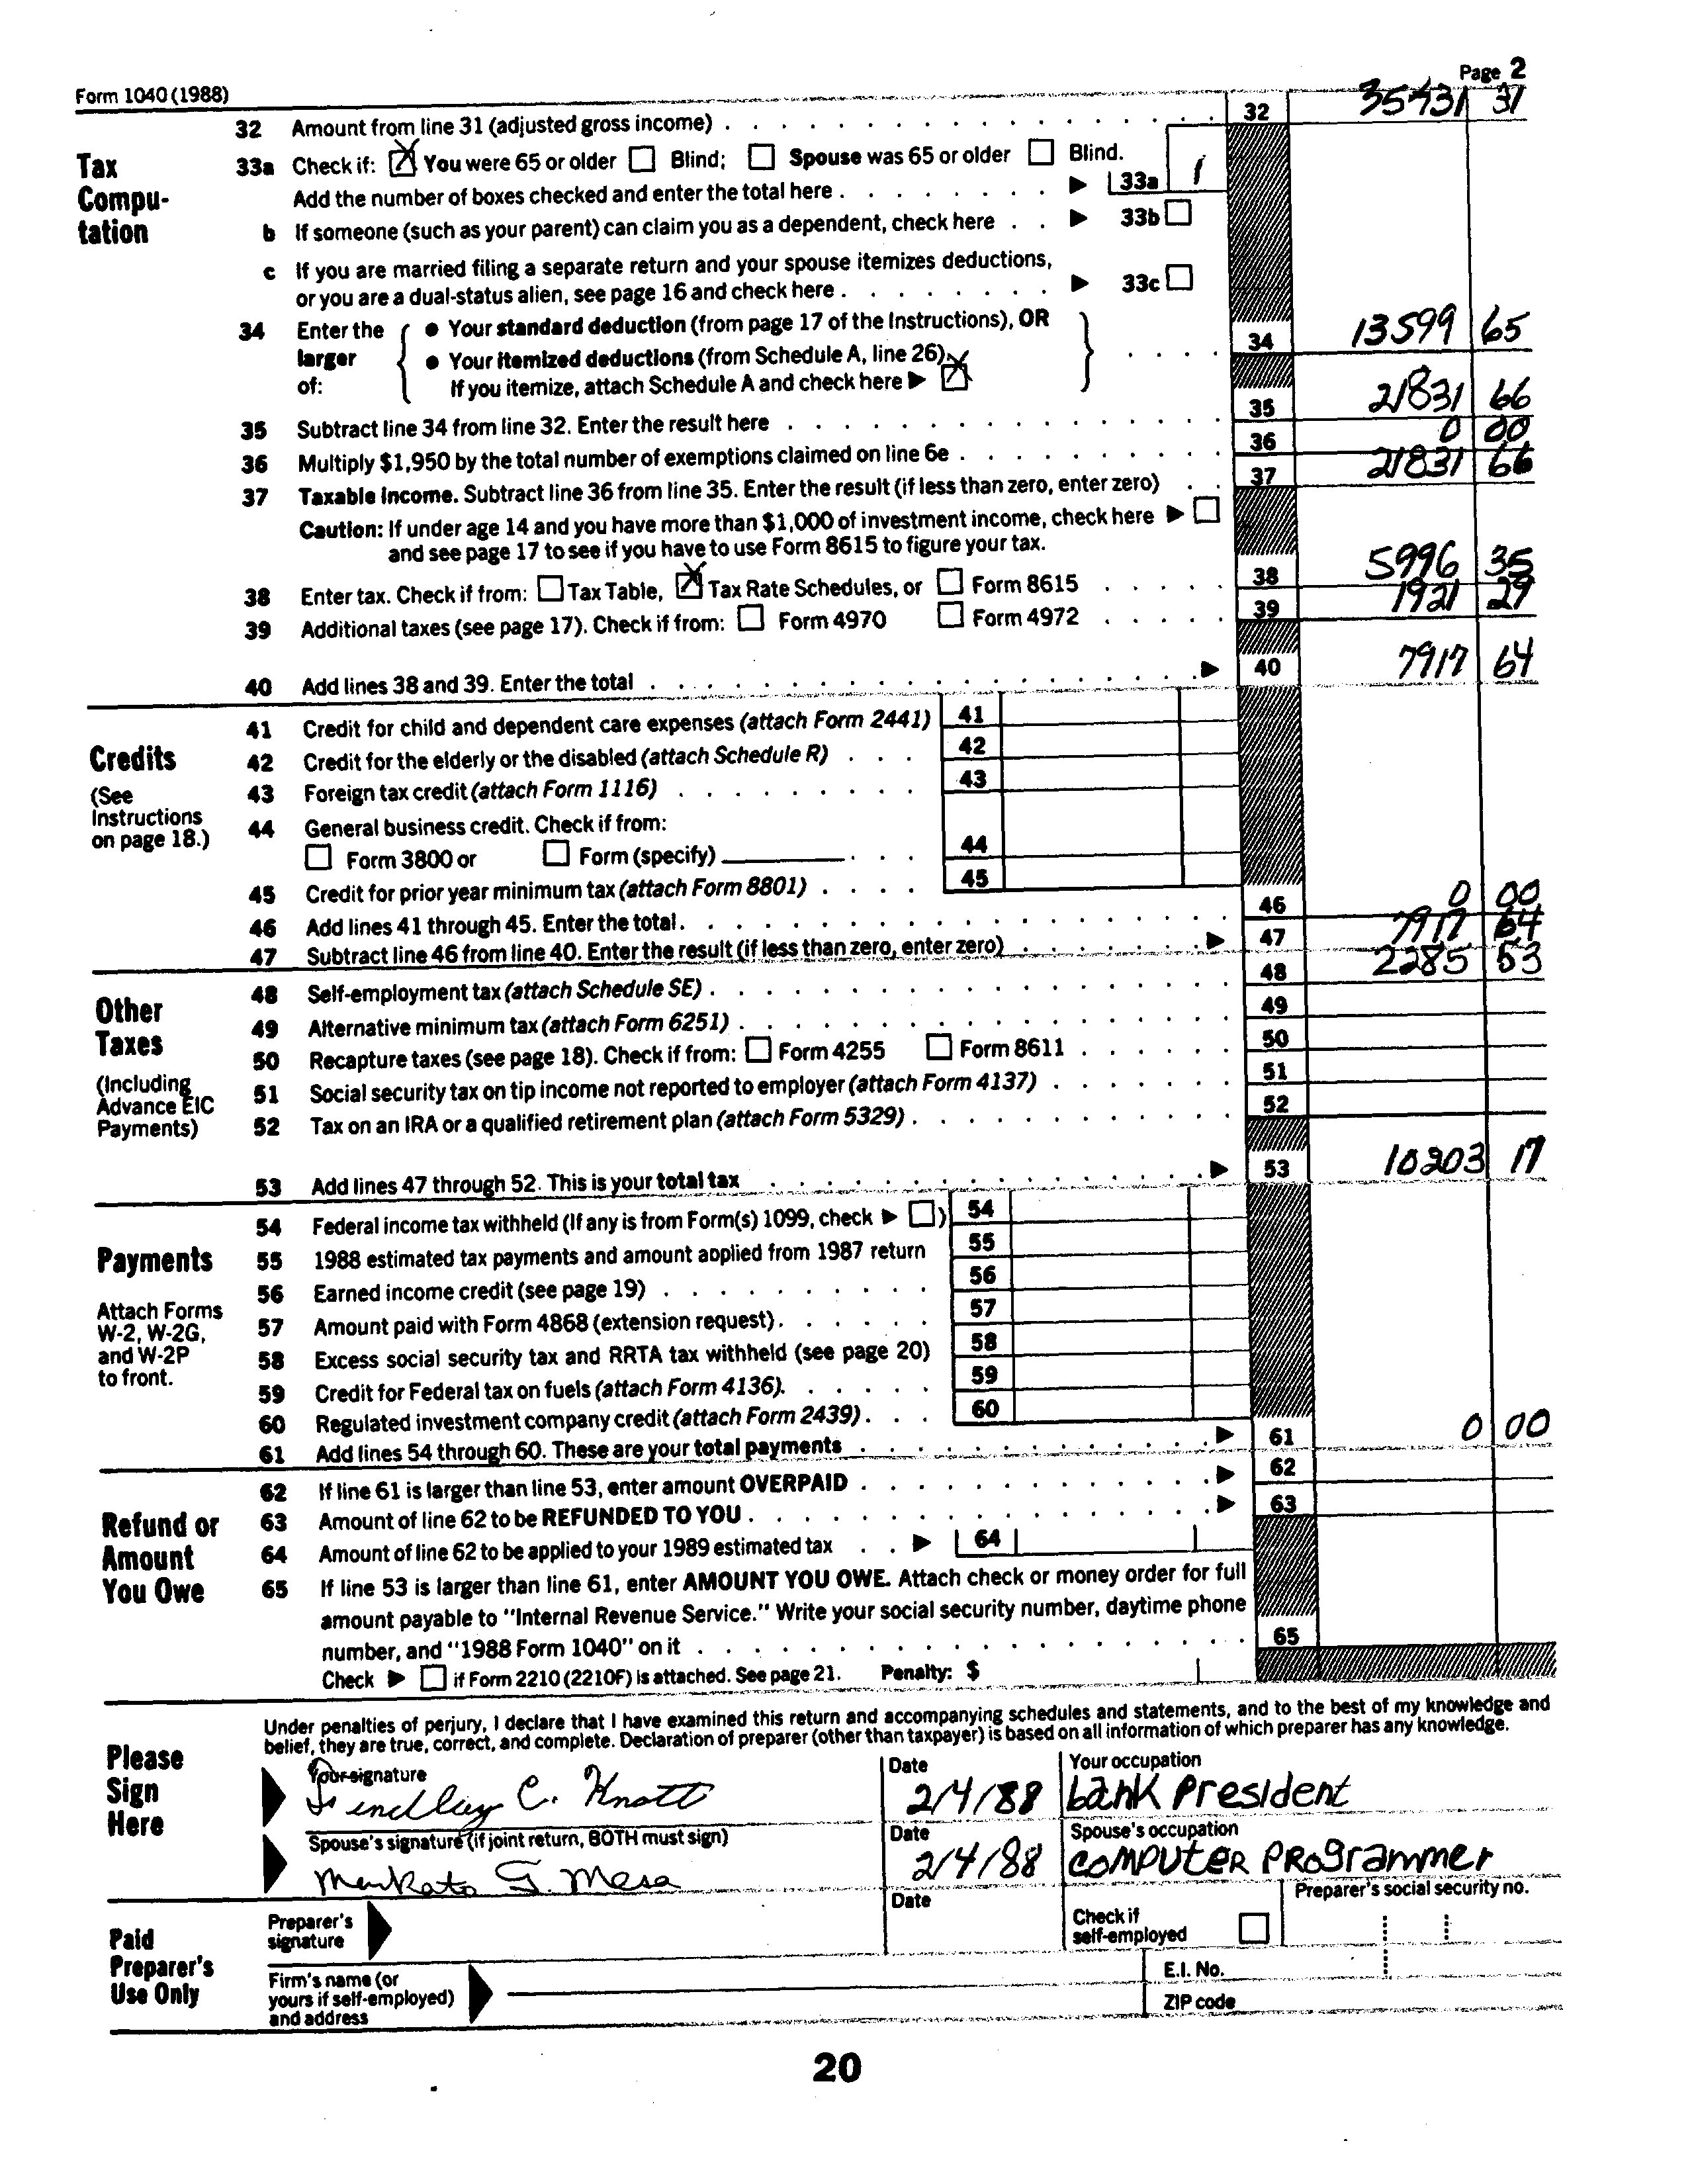 Form 1040 (1988)
Page 2
Tax Computation
32 Amount from line 31 (adjusted gross income) 32 35431 31
33a Check if: ☒ You were 65 or older ☐ Blind; ☐ Spouse was 65 or older ☐ Blind.
Add the number of boxes checked and enter the total here 33a 1
b If someone (such as your parent) can claim you as a dependent, check here 33b ☐
c If you are married filing a separate return and your spouse itemizes deductions,
or you are a dual-status alien, see page 16 and check here 33c ☐
34 Enter the larger of: ● Your standard deduction (from page 17 of the Instructions), OR
● Your itemized deductions (from Schedule A, line 26).
If you itemize, attach Schedule A and check here ▶ ☒ 34 13599 65
35 Subtract line 34 from line 32. Enter the result here 35 21831 66
36 Multiply $1,950 by the total number of exemptions claimed on line 6e 36 0 00
37 Taxable Income. Subtract line 36 from line 35. Enter the result (if less than zero, enter zero) 37 21831 66
Caution: If under age 14 and you have more than $1,000 of investment income, check here ▶ ☐
and see page 17 to see if you have to use Form 8615 to figure your tax.
38 Enter tax. Check if from: ☐ Tax Table, ☒ Tax Rate Schedules, or ☐ Form 8615 38 5996 35
39 Additional taxes (see page 17). Check if from: ☐ Form 4970 ☐ Form 4972 39 1921 29
40 Add lines 38 and 39. Enter the total ▶ 40 7917 64
Credits
(See Instructions on page 18.)
41 Credit for child and dependent care expenses (attach Form 2441) 41
42 Credit for the elderly or the disabled (attach Schedule R) 42
43 Foreign tax credit (attach Form 1116) 43
44 General business credit. Check if from:
☐ Form 3800 or ☐ Form (specify) 44
45 Credit for prior year minimum tax (attach Form 8801) 45
46 Add lines 41 through 45. Enter the total. 46 0 00
47 Subtract line 46 from line 40. Enter the result (if less than zero, enter zero) ▶ 47 7917 64
Other Taxes
(Including Advance EIC Payments)
48 Self-employment tax (attach Schedule SE) 48 2285 53
49 Alternative minimum tax (attach Form 6251) 49
50 Recapture taxes (see page 18). Check if from: ☐ Form 4255 ☐ Form 8611 50
51 Social security tax on tip income not reported to employer (attach Form 4137) 51
52 Tax on an IRA or a qualified retirement plan (attach Form 5329) 52
53 Add lines 47 through 52. This is your total tax ▶ 53 10203 17
Payments
Attach Forms W-2, W-2G, and W-2P to front.
54 Federal income tax withheld (If any is from Form(s) 1099, check ▶ ☐) 54
55 1988 estimated tax payments and amount applied from 1987 return 55
56 Earned income credit (see page 19) 56
57 Amount paid with Form 4868 (extension request) 57
58 Excess social security tax and RRTA tax withheld (see page 20) 58
59 Credit for Federal tax on fuels (attach Form 4136). 59
60 Regulated investment company credit (attach Form 2439) 60
61 Add lines 54 through 60. These are your total payments ▶ 61 0 00
Refund or Amount You Owe
62 If line 61 is larger than line 53, enter amount OVERPAID ▶ 62
63 Amount of line 62 to be REFUNDED TO YOU ▶ 63
64 Amount of line 62 to be applied to your 1989 estimated tax ▶ 64
65 If line 53 is larger than line 61, enter AMOUNT YOU OWE. Attach check or money order for full
amount payable to "Internal Revenue Service." Write your social security number, daytime phone
number, and "1988 Form 1040" on it 65
Check ▶ ☐ if Form 2210 (2210F) is attached. See page 21. Penalty: $
Please Sign Here
Under penalties of perjury, I declare that I have examined this return and accompanying schedules and statements, and to the best of my knowledge and
belief, they are true, correct, and complete. Declaration of preparer (other than taxpayer) is based on all information of which preparer has any knowledge.
Your signature Date Your occupation
Findlay C. Knott 2/4/88 bank President
Spouse's signature (if joint return, BOTH must sign) Date Spouse's occupation
Mankato G. Mesa 2/4/88 COMPUTER PROgrammer
Paid Preparer's Use Only
Preparer's signature Date Check if self-employed ☐ Preparer's social security no.
Firm's name (or yours if self-employed) and address
E.I. No.
ZIP code
20